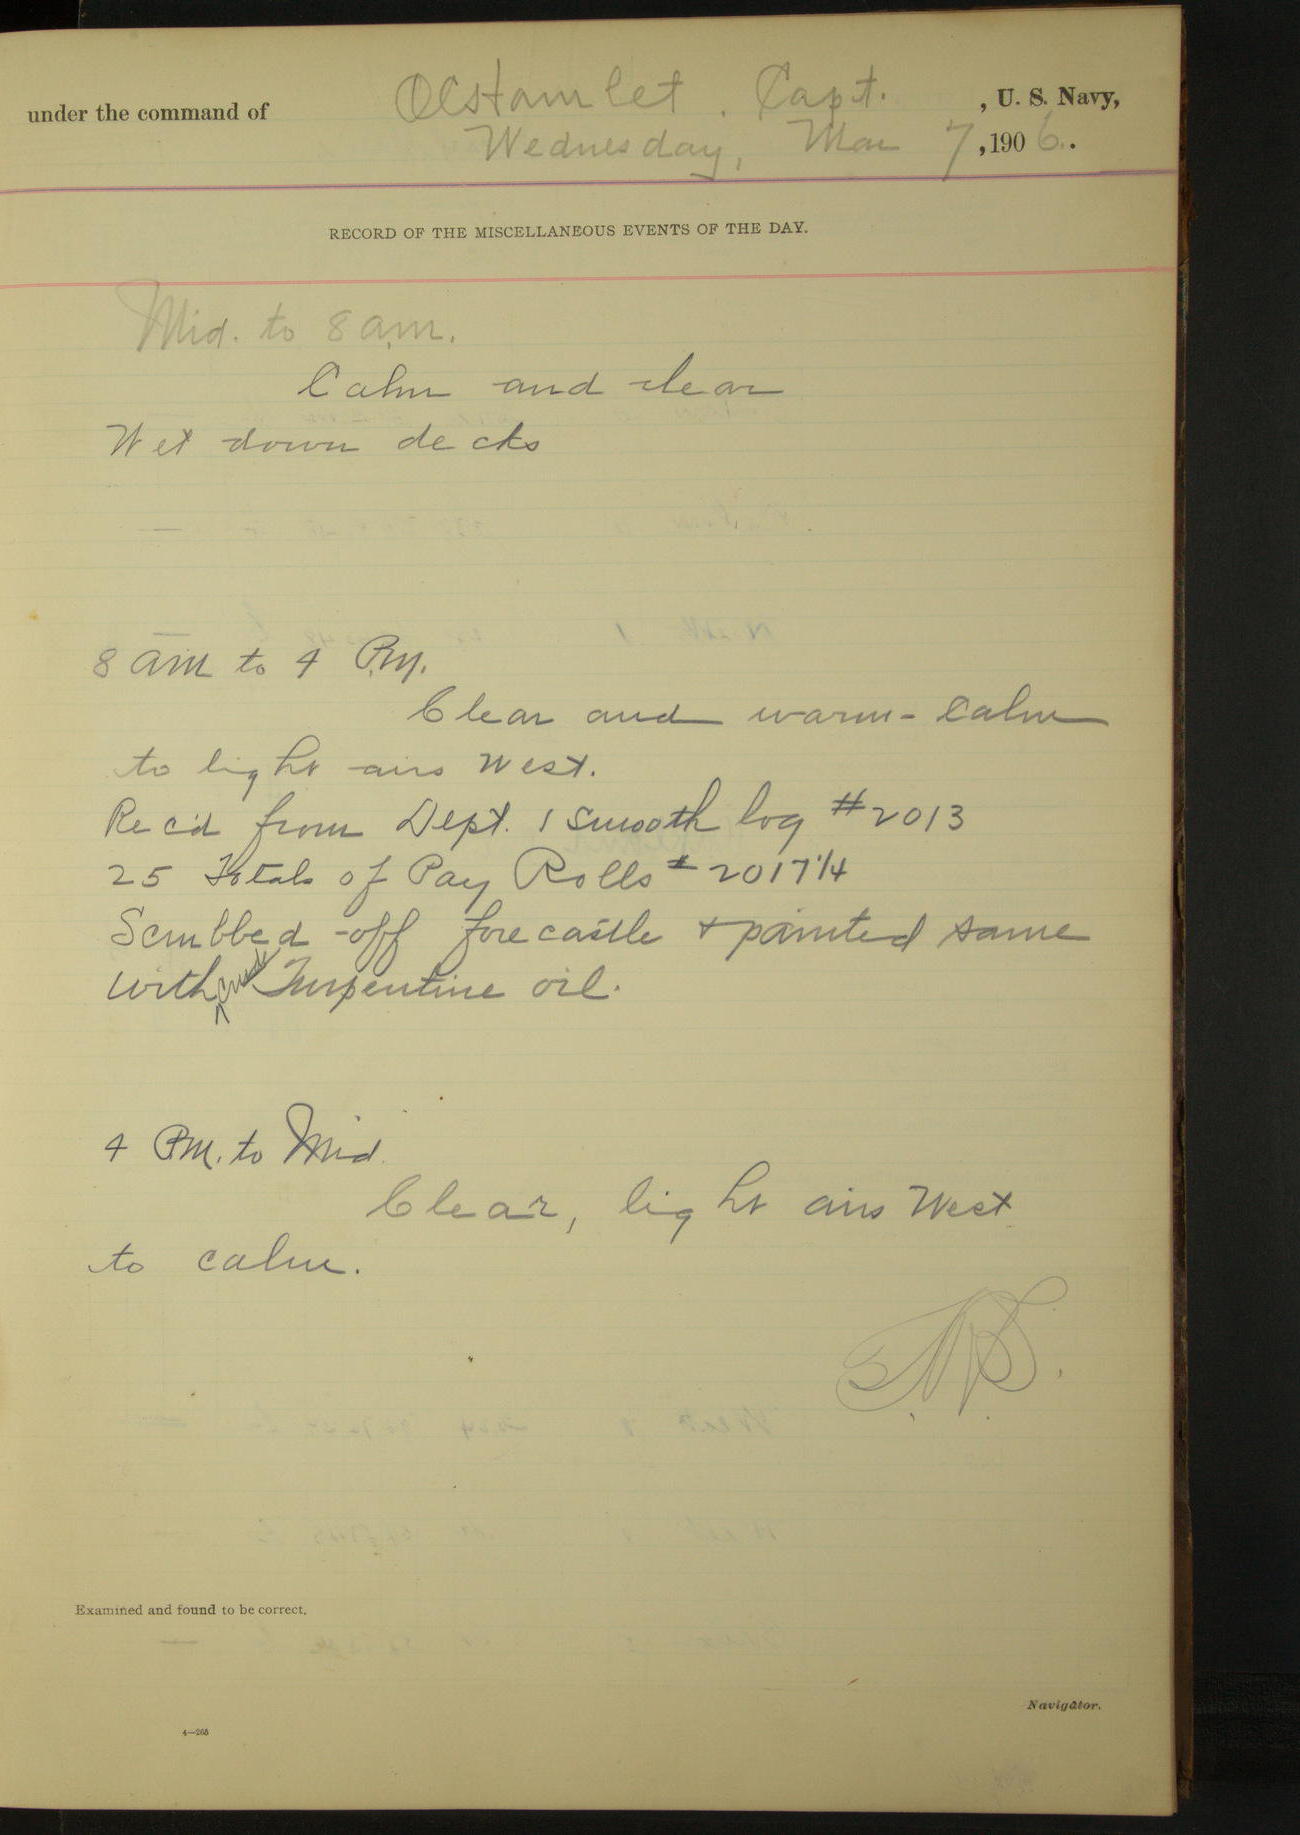 under the command of OCHamlet. Capt. , U. S. Navy,
Wednesday, Mar 7, 1906.
RECORD OF THE MISCELLANEOUS EVENTS OF THE DAY.
Mid. to 8 a.m.
Calm and clear
Wet down decks
8 am to 4 P.M.
Clear and warm - Calm
to light airs West.
Rec'd from Dept. 1 smooth log #2013
25 Totals of Pay Rolls # 2017 1/4
Scrubbed off forecastle & painted same
with crude Turpentine oil.
4 P.M. to Mid
Clear, light airs West
to calm.
Examined and found to be correct.
Navigator.
4—265